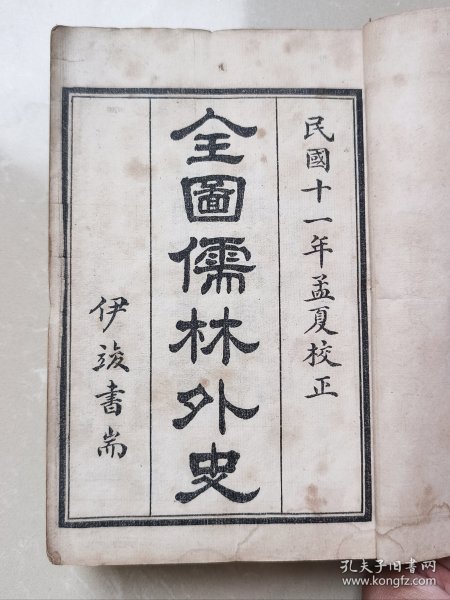 民國十一年孟夏校正
全圖儒林外史
伊竣書耑
孔夫子旧书网
www.kongfz.com